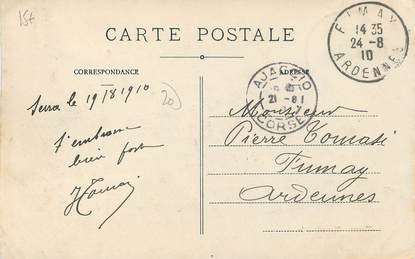 15€
CARTE POSTALE
CORRESPONDANCE
ADRESSE
FUMAY
14 35
24 - 8
10
ARDENNES
AJACCIO
21 - 8
CORSE
20
le 19/8/1910
J'embrasse
bien fort
Monsieur
Pierre Tomasi
Fumay
Ardennes